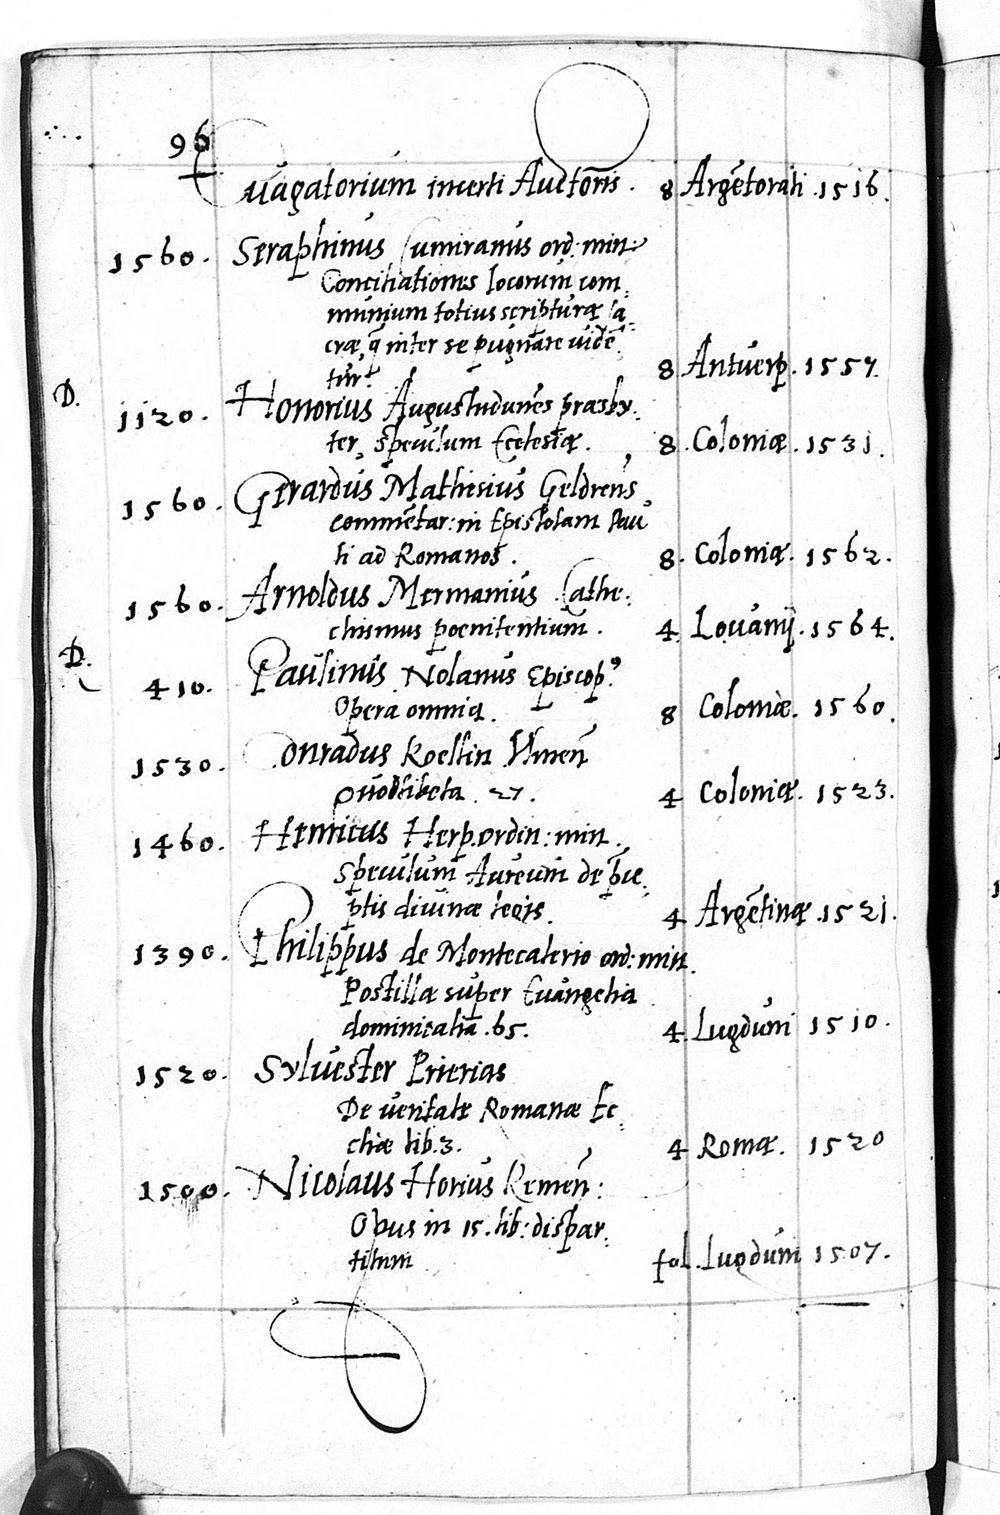 96
Vagatorium incerti Auctoris. 8 Argẽtorati. 1516.
1560. Seraphinus Cumiranus ord: min:
Conciliationes locorum com,
munium totius scripturæ sa,
cræ, q̃ inter se pugnare uidẽ,
tur. 8 Antuerp. 1557.
D. 1120. Honorius Augustudunẽs prasby,
ter, Speculum Ecclesiæ. 8. Coloniæ. 1531.
1560. Gerardus Mathisius Geldrens,
commẽtar: in Epistolam Pau
li ad Romanos. 8. Coloniæ. 1562.
1560. Arnoldus Mermanius Cathe,
chismus poenitentium. 4. Louanij. 1564.
D. 410. Paulinus Nolanus Episcop⁹
Opera omnia. 8 Coloniæ. 1560.
1530. Conradus Koellin Ulmeñ
Quodlibeta 27. 4 Coloniæ. 1523.
1460. Henricus Herp. ordin: min.
Speculum Aureum de p̃ce,
ptis diuinæ legis. 4 Argẽtinæ. 1521.
1390. Philippus de Montecalerio ord: min.
Postillæ super Euangelia
dominicalia. 65. 4. Lugduni 1510.
1520. Sylvester Prierias
De ueritate Romanæ Ec,
cliæ lib. 3. 4 Romæ. 1520
1500. Nicolaus Horius Remeñ:
Opus in 15. lib: dispar,
titum fol. Lugduni 1507.